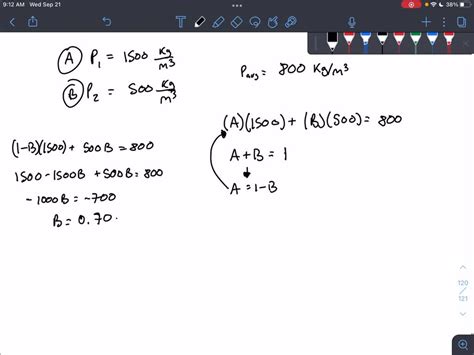 9:12 AM Wed Sep 21
38%
(A) P₁ = 1500 Kg/m³
Pavg = 800 Kg/m³
(B) P₂ = 500 Kg/m³
(A)(1500) + (B)(500) = 800
(1-B)(1500) + 500B = 800
A + B = 1
1500 - 1500B + 500B = 800
A = 1 - B
-1000B = -700
B = 0.70
120
121